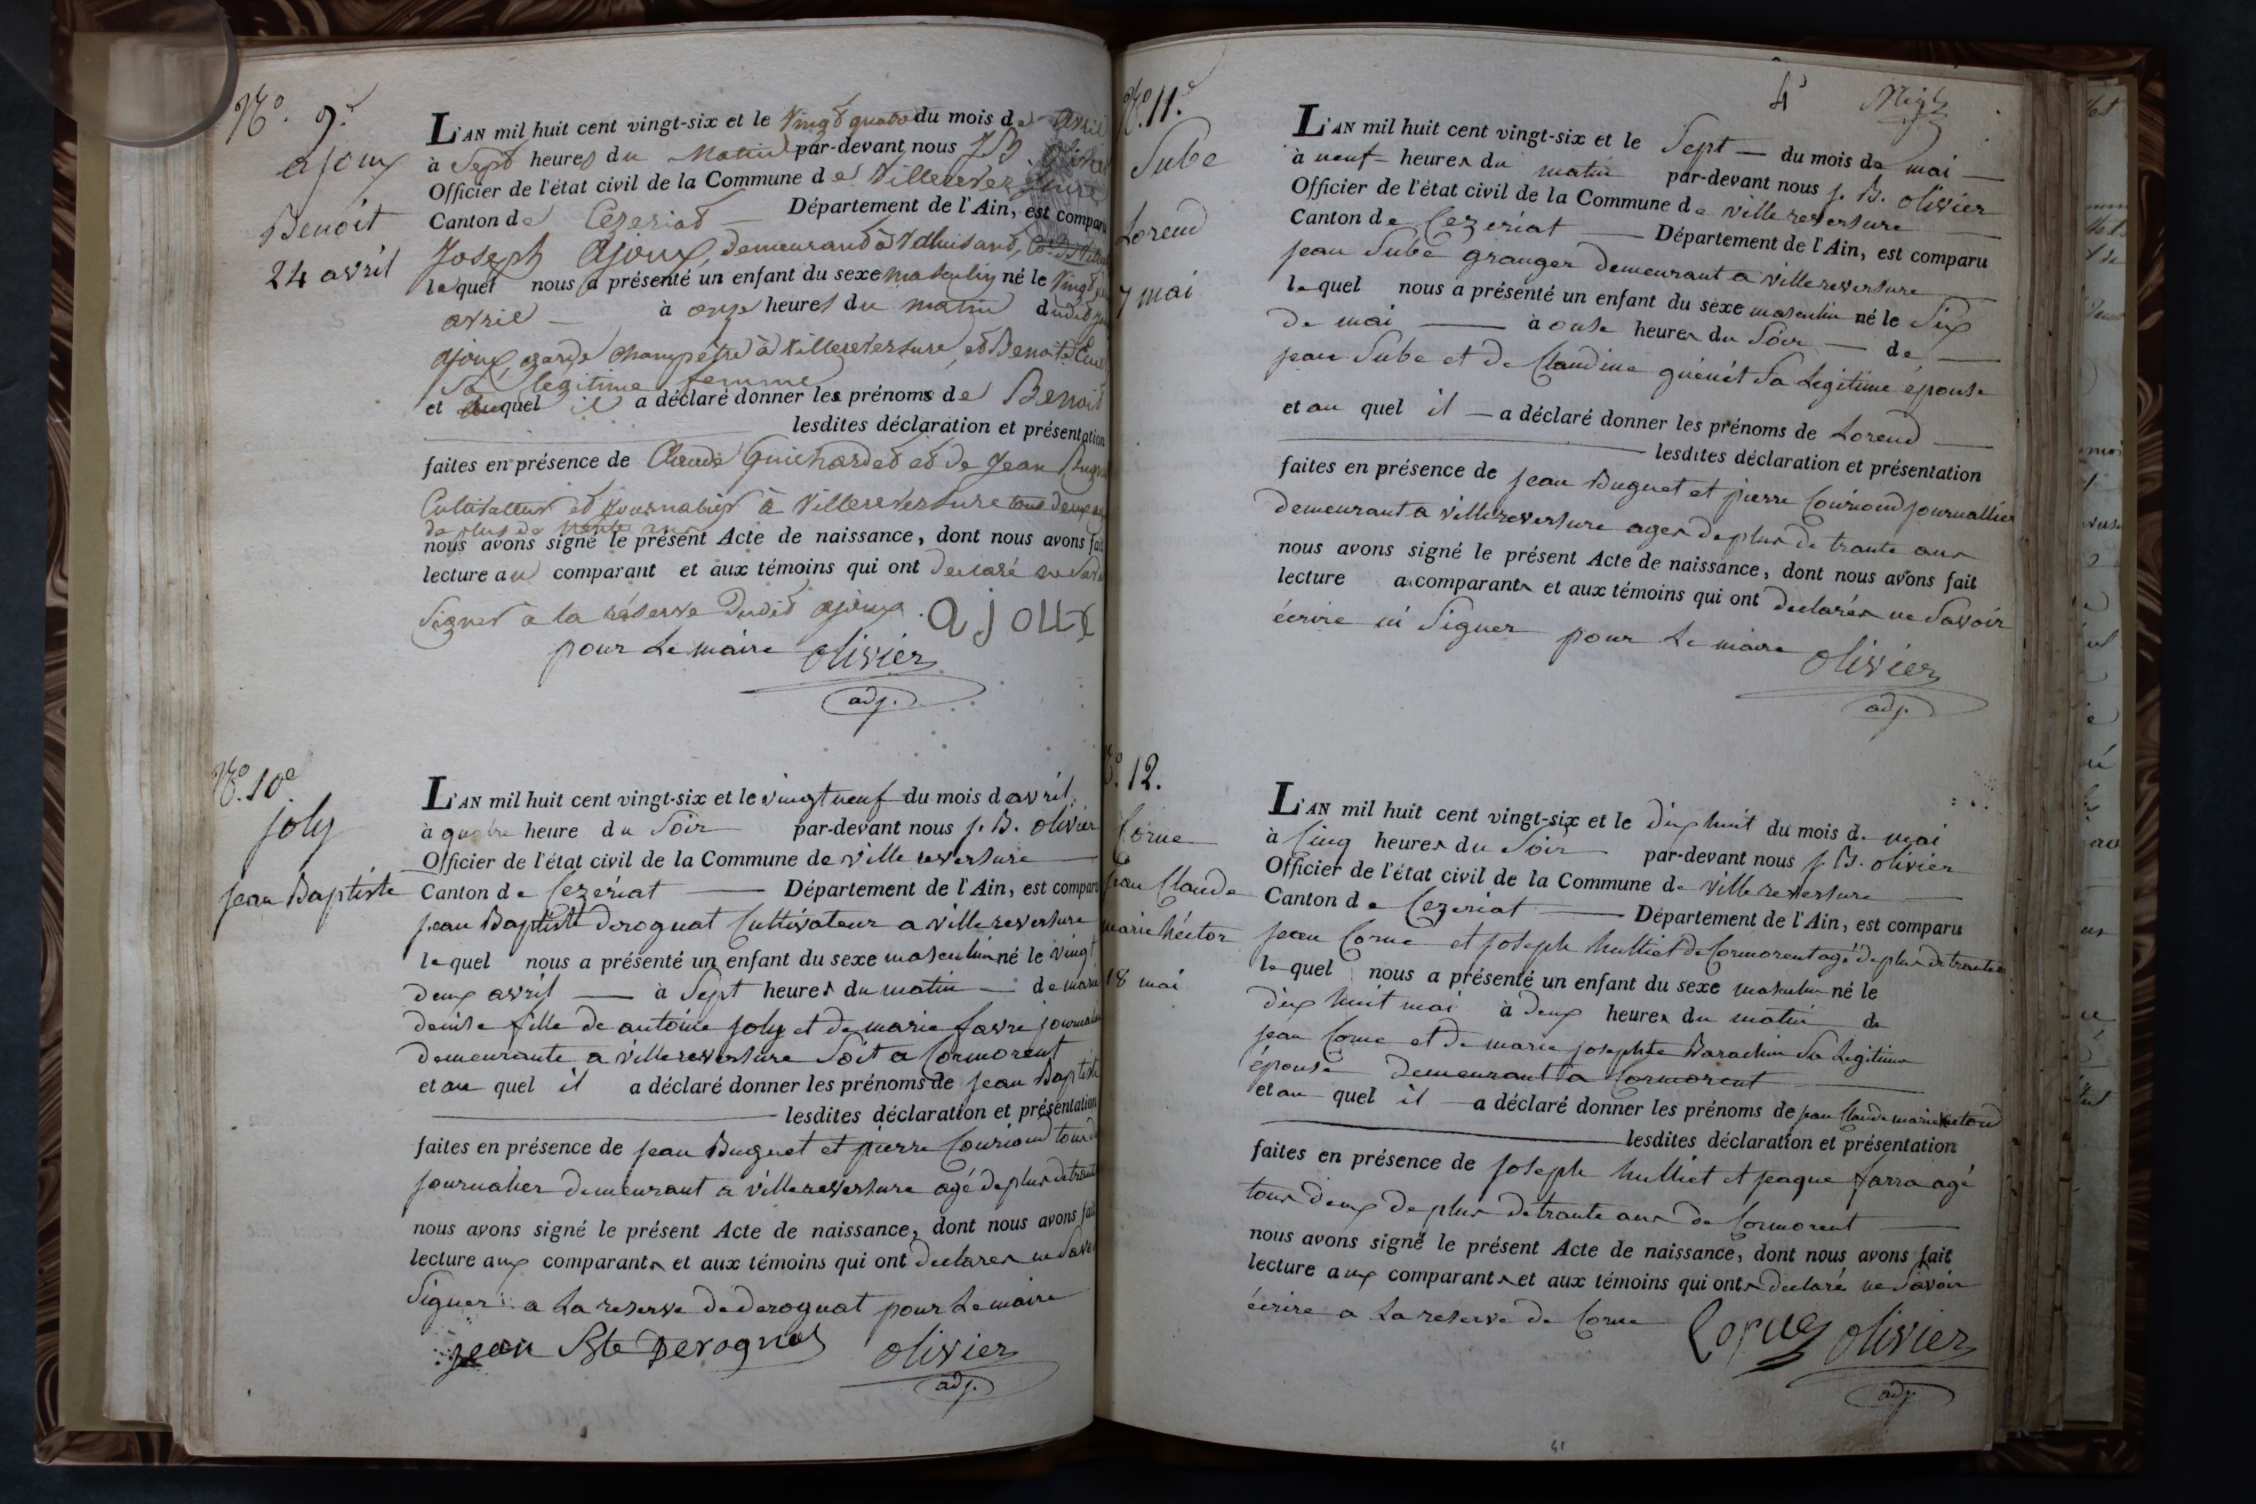 No. 9.e
ajoux
Benoit
24 avril
L'AN mil huit cent vingt-six et le vingt quatre du mois de avril
à Sept heures du Matin par-devant nous J B
Officier de l'état civil de la Commune de Villereversure
Canton de Cezeriat Département de l'Ain, est comparu
Joseph Ajoux, demeurant à
lequel nous a présenté un enfant du sexe masculin né le vingt
avril à onze heures du matin dudit
ajoux, garde champêtre à villereversure, et Benoite
sa legitime femme
et auquel il a déclaré donner les prénoms de Benoit
lesdites déclaration et présentation
faites en présence de Claude Guichardet et de Jean Buguet
Cultivateur et Journalier à Villereversure tous deux
de plus de trente ans
nous avons signé le présent Acte de naissance, dont nous avons fait
lecture au comparant et aux témoins qui ont declaré ne savoir
signer a la réserve dudit ajoux. ajoux
pour Le maire olivier
adj.
No. 10e
joly
jean Baptiste
L'AN mil huit cent vingt-six et le vingt neuf du mois d avril
à quatre heure du Soir par-devant nous j. B. olivier
Officier de l'état civil de la Commune de ville reversure
Canton de Cezériat Département de l'Ain, est comparu
jean Baptiste derognat Cultivateur a ville reversure
lequel nous a présenté un enfant du sexe masculin né le vingt
deux avril à Sept heures du matin de marie
denise fille de antoine joly et de marie favre journalier
demeurante a villereversure Soit a Cormorent
et au quel il a déclaré donner les prénoms de jean Baptiste
lesdites déclaration et présentation
faites en présence de jean Buguet et pierre Couriond tous d
journalier demeurant a villereversure agé de plus de trante
nous avons signé le présent Acte de naissance, dont nous avons fait
lecture aux comparants et aux témoins qui ont declares ne Savoir
Signer a La reserve de derognat pour Le maire
jean Bte Derognat olivier
adj.
4e
No. 11.e
Sube
Lorend
7 mai
L'AN mil huit cent vingt-six et le Sept du mois de mai
à neuf heures du matin par-devant nous j. B. olivier
Officier de l'état civil de la Commune de ville reversure
Canton de Cezeriat Département de l'Ain, est comparu
jean Sube granger demeurant a villereversure
lequel nous a présenté un enfant du sexe masculin né le Six
de mai à onse heures du Soir de
jean Sube et de Claudine guénét Sa Legitime épouse
et au quel il a déclaré donner les prénoms de Lorend
lesdites déclaration et présentation
faites en présence de jean Buguet et pierre Couriond journallier
demeurant a villereversure ages de plus de trante ans
nous avons signé le présent Acte de naissance, dont nous avons fait
lecture a comparants et aux témoins qui ont declarés ne Savoir
écrire ni Signer pour Le maire olivier
adj.
No. 12.
Corue
jean Claude
marie héctor
18 mai
L'AN mil huit cent vingt-six et le dix huit du mois de mai
à Cinq heures du Soir par-devant nous j. B. olivier
Officier de l'état civil de la Commune de ville reversure
Canton de Cezeriat Département de l'Ain, est comparu
jean Corue et joseph hulliet de Cormorent agé de plus de trante
lequel nous a présenté un enfant du sexe masculin né le
dix huit mai à deux heures du matin de
jean Corue et de marie josephte Barachin Sa Legitime
épouse demeurant a Cormorent
et au quel il a déclaré donner les prénoms de jean Claude marie
lesdites déclaration et présentation
faites en présence de joseph hulliet et jaque farra agé
tous deux de plus de trante ans de Cormorent
nous avons signé le présent Acte de naissance, dont nous avons fait
lecture aux comparants et aux témoins qui ont declaré ne Savoir
écrire a La reserve de Corue Corue olivier
adj.